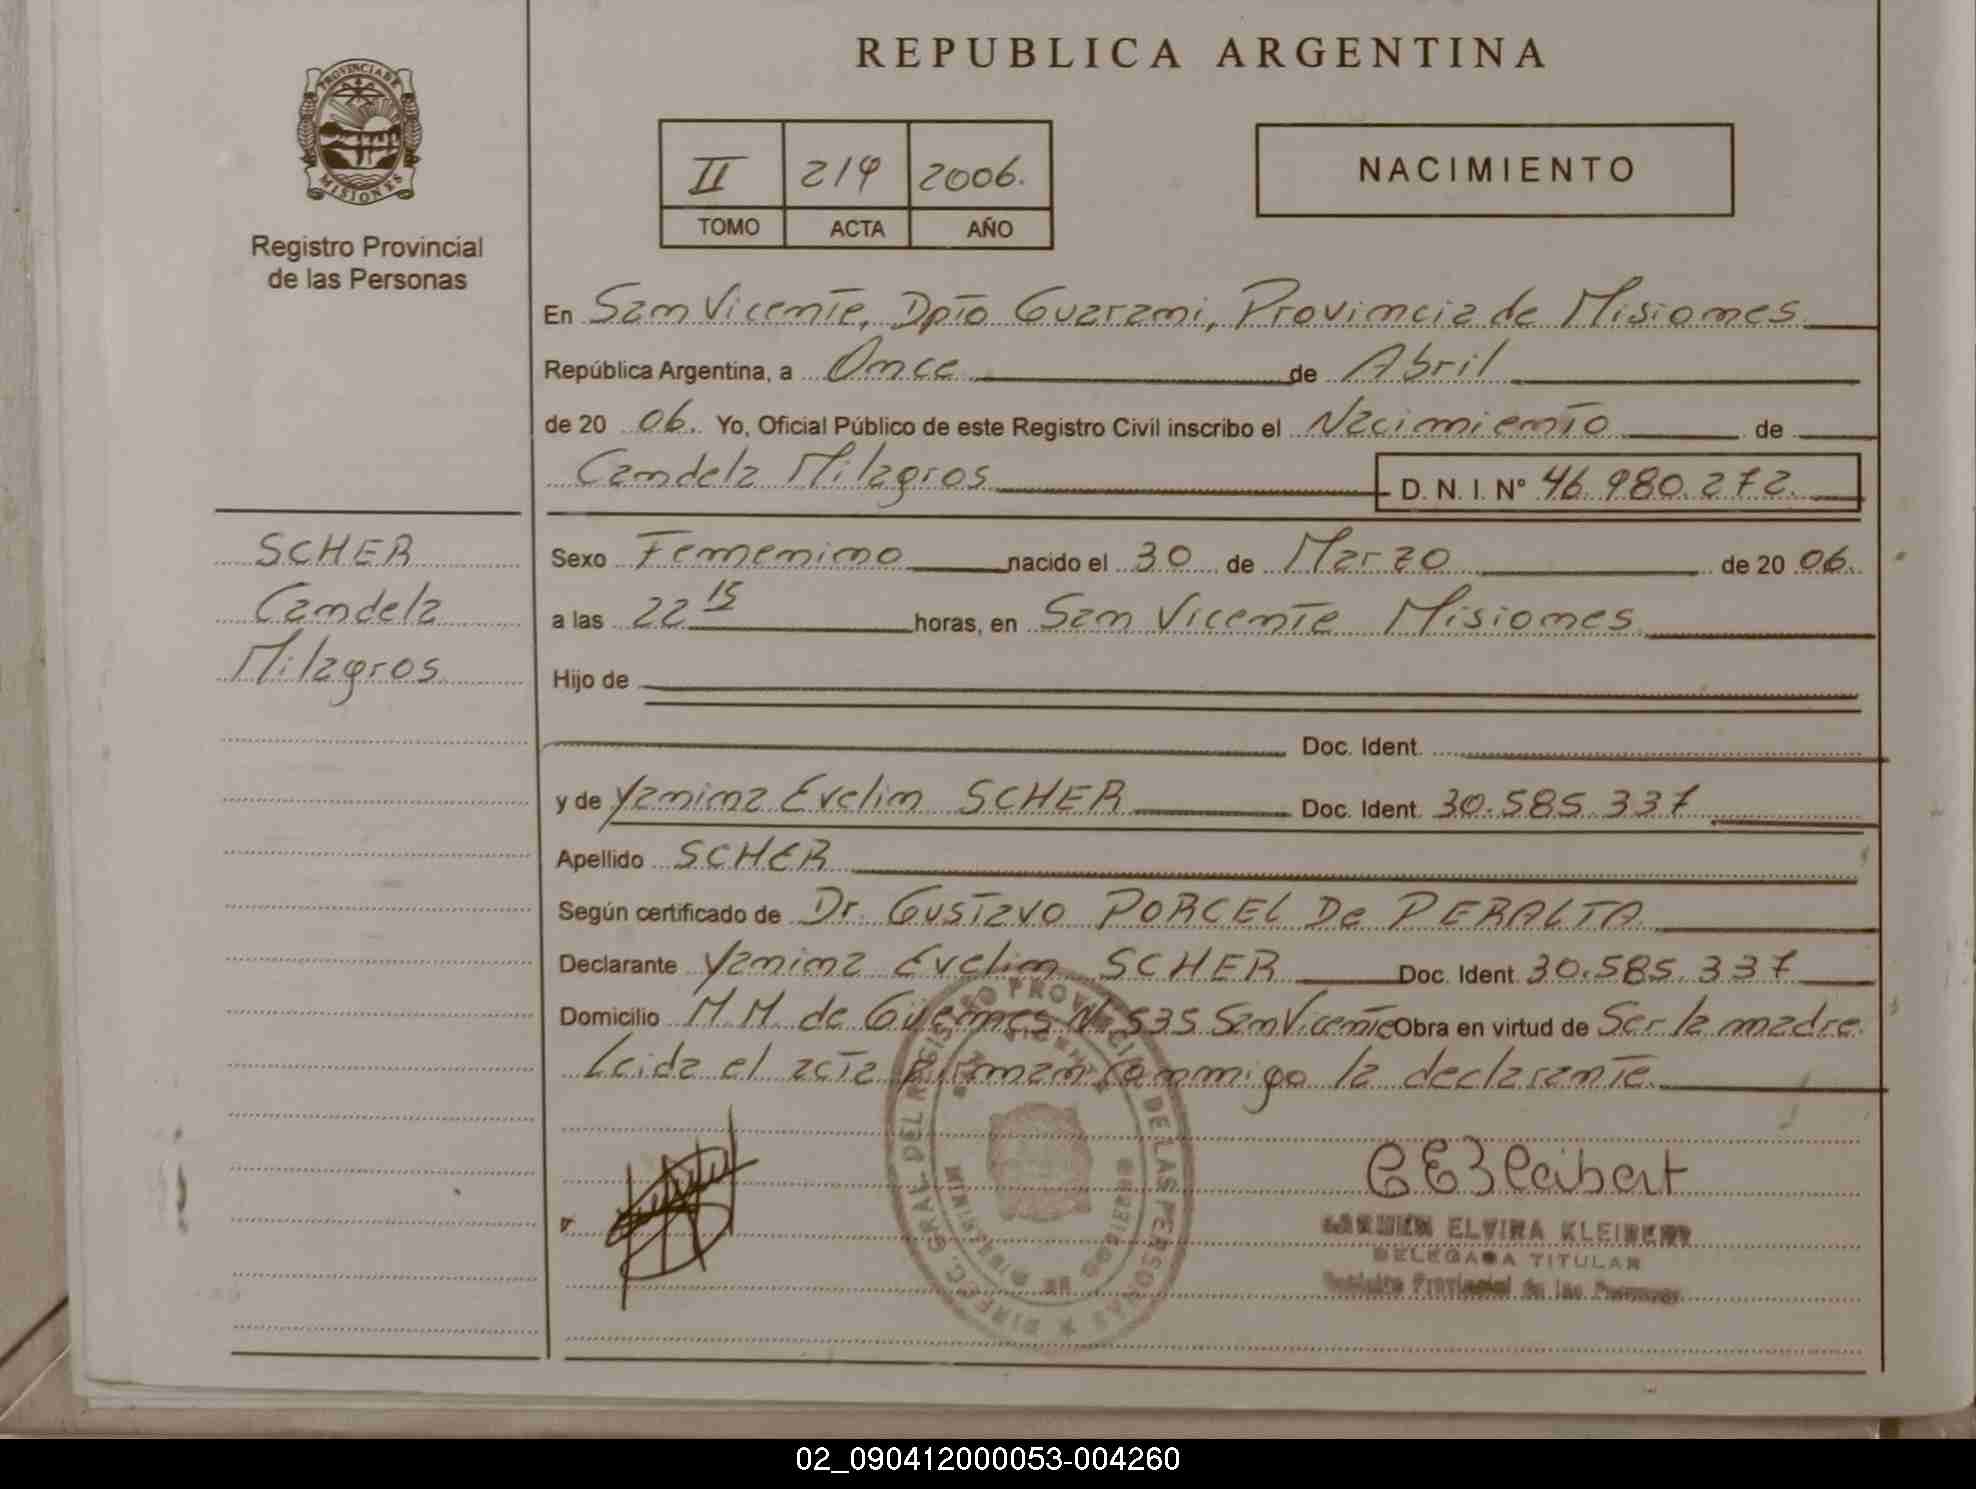 PROVINCIA DE
MISIONES
Registro Provincial
de las Personas
REPUBLICA ARGENTINA
II 219 2006.
TOMO ACTA AÑO
NACIMIENTO
En San Vicente, Dpto Guarani, Provincia de Misiones
República Argentina, a Once de Abril
de 20 06. Yo, Oficial Público de este Registro Civil inscribo el Nacimiento de
Candela Milagros D. N. I. N° 46.980.272.
SCHER
Candela
Milagros
Sexo Femenino nacido el 30 de Marzo de 20 06.
a las 22 15 horas, en San Vicente Misiones
Hijo de
Doc. Ident.
y de Yanina Evelin SCHER Doc. Ident. 30.585.337
Apellido SCHER
Según certificado de Dr. Gustavo PORCEL De PERALTA
Declarante Yanina Evelin SCHER Doc. Ident. 30.585.337
Domicilio M.M. de Güemes N° 535 San Vicente Obra en virtud de Ser la madre
Leida el acta firman conmigo la declarante
DIREC. GRAL. DEL REGISTRO PROVINCIAL DE LAS PERSONAS
MINISTERIO DE GOBIERNO
CEKleibert
CARMEN ELVIRA KLEIBERT
DELEGADA TITULAR
Registro Provincial de las Personas
02_090412000053-004260